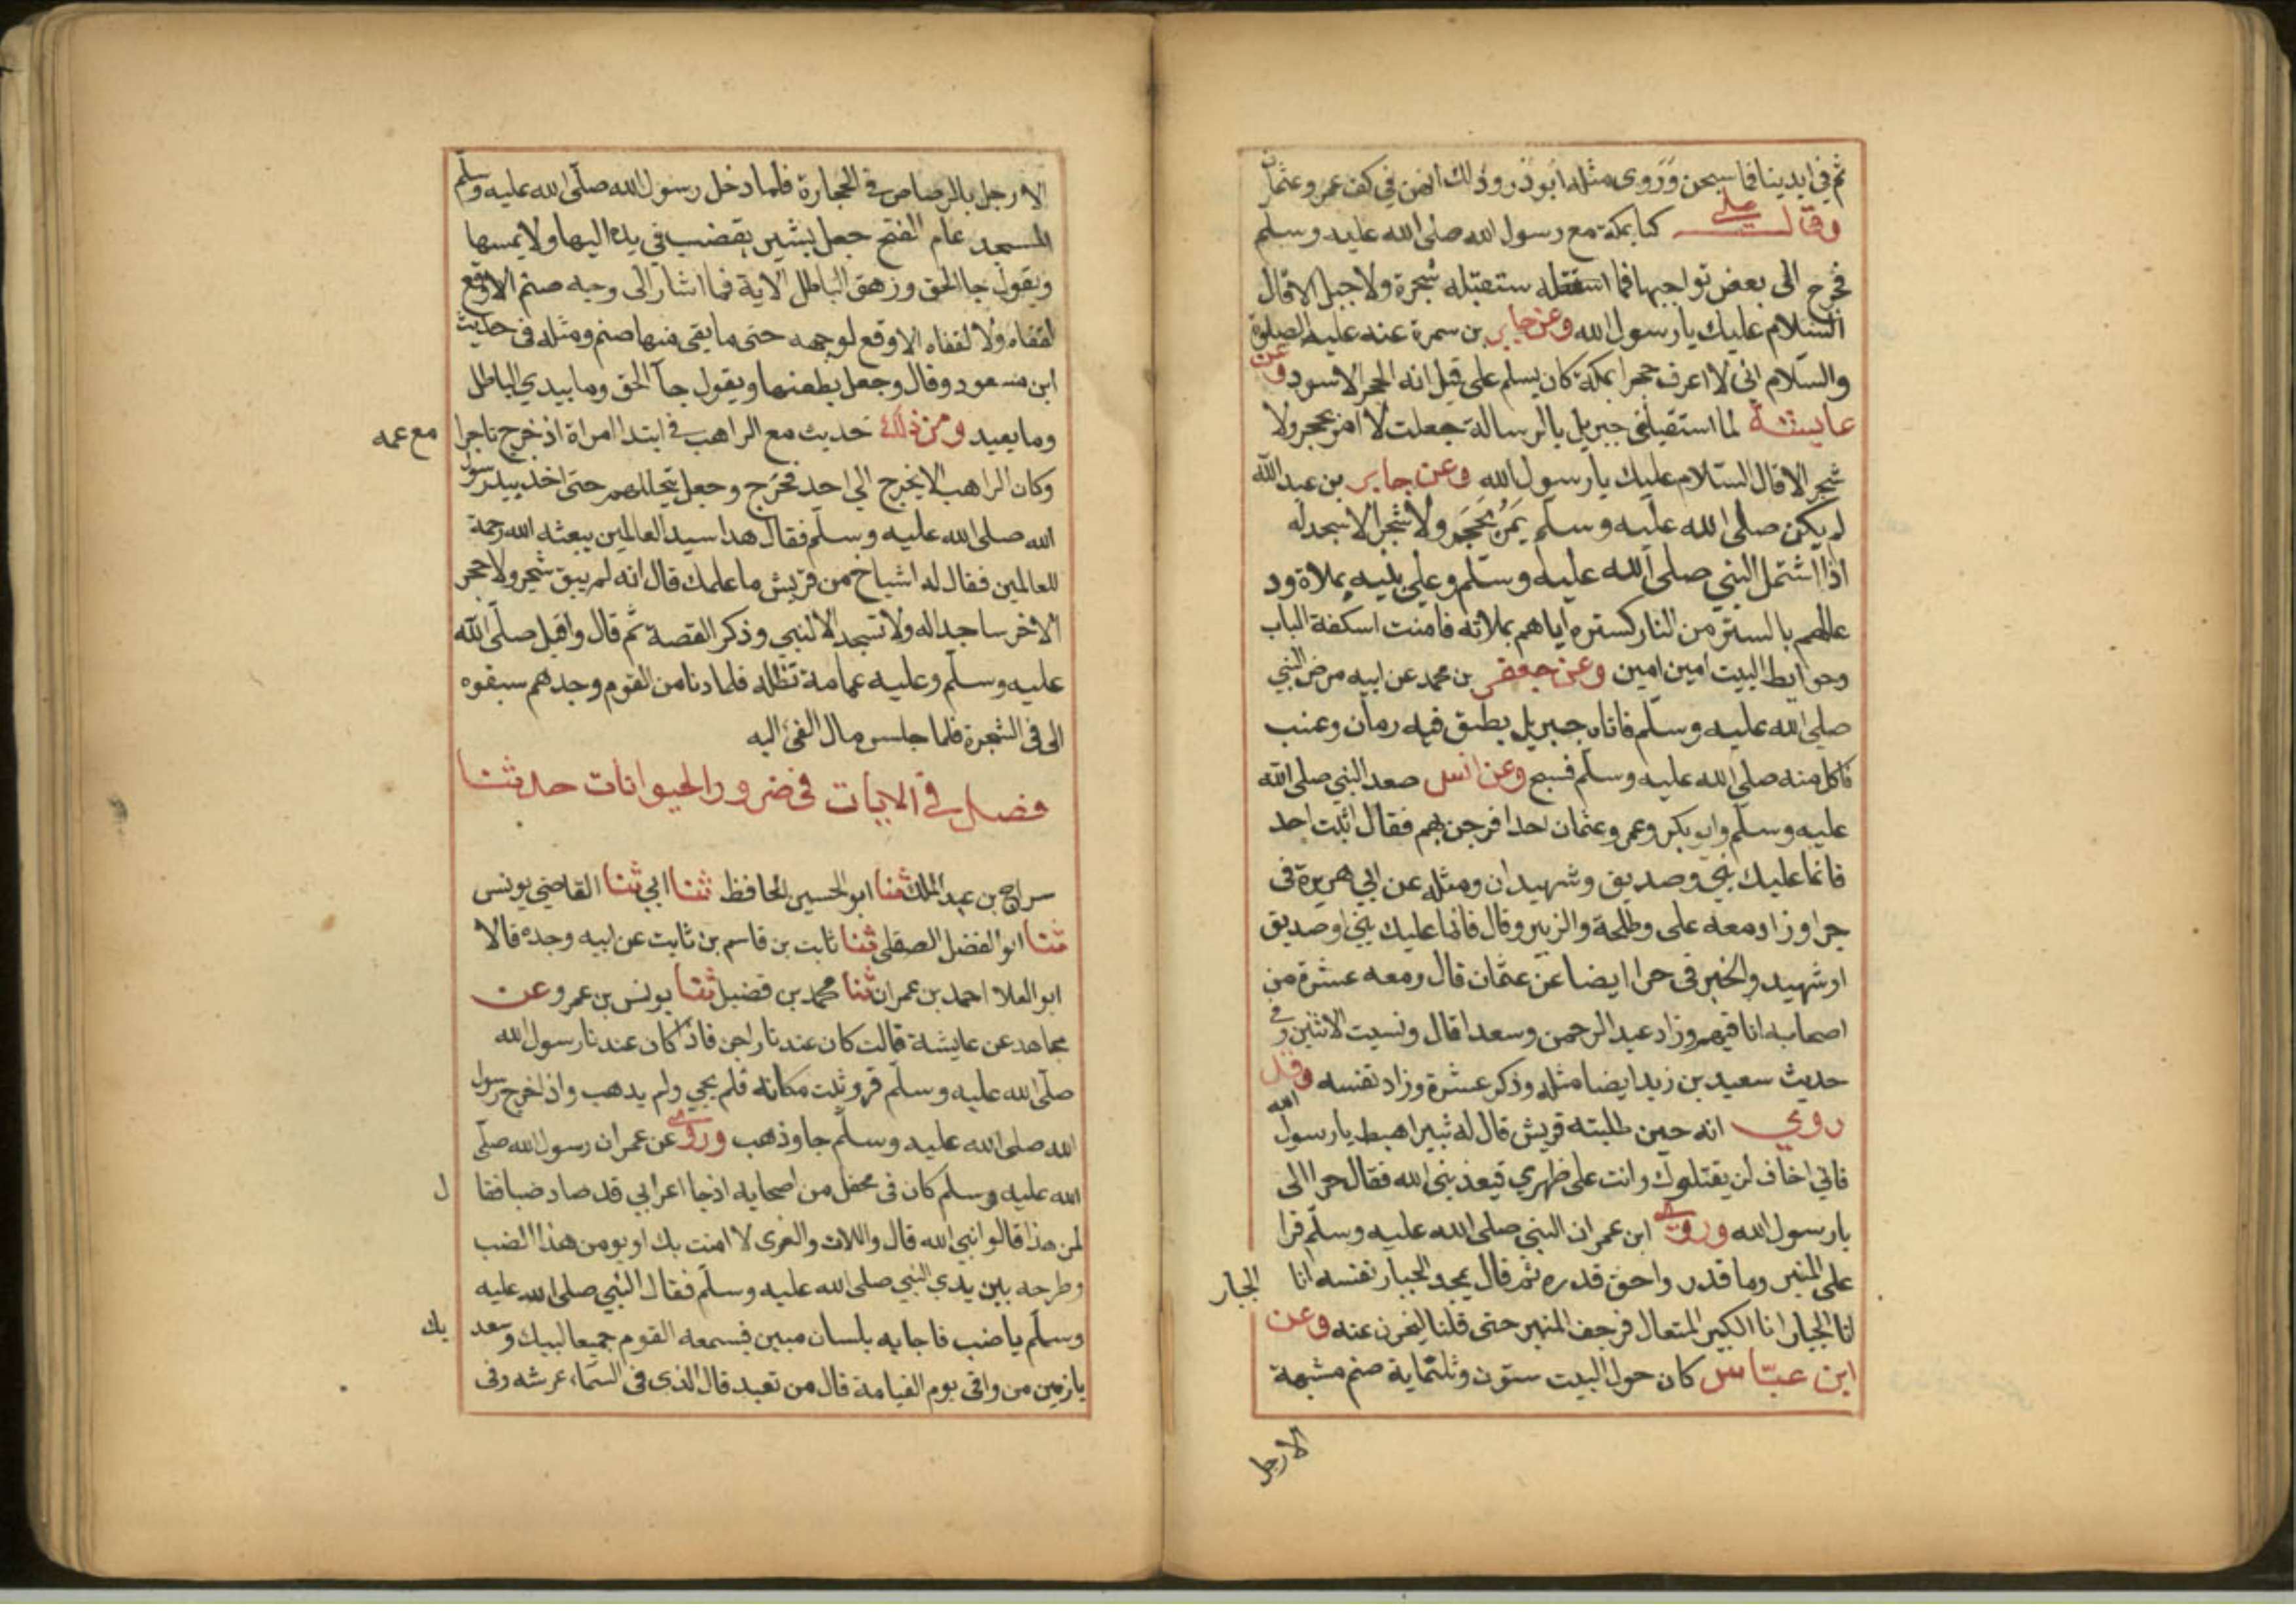 ثم في ايدينا فما سبحن وروى مثله ابوذر وذلك انهن في كف عمر وعثمان
وقال علي كنا بمكة مع رسول الله صلى الله عليه وسلم
فخرج الى بعض نواحيها فما استقبله شجرة ولا جبل الا قال
السلام عليك يا رسول الله وعن جابر بن سمرة عنه عليه الصلوة
والسلام اني لا اعرف حجرا بمكة كان يسلم علي قيل انه الحجر الاسود وعن
عايشة لما استقبلني جبريل بالرسالة جعلت لا امر بحجر ولا
شجر الا قال السلام عليك يا رسول الله وعن جابر بن عبد الله
لم يكن صلى الله عليه وسلم يمر بحجر ولا شجر الا سجد له
اذا اشتمل النبي صلى الله عليه وسلم وعلى بنيه بملاة ود
عالهم بالستر من النار كستره اياهم بملاته فامنت اسكفة الباب
وحوايط البيت امين امين وعن جعفر بن محمد عن ابيه مرض النبي
صلى الله عليه وسلم فاتاه جبريل بطبق فيه رمان وعنب
فاكل منه صلى الله عليه وسلم فسبح وعن انس صعد النبي صلى الله
عليه وسلم وابو بكر وعمر وعثمان احدا فرجف بهم فقال اثبت احد
فانما عليك نبي وصديق وشهيدان ومثله عن ابي هريرة في
حرا وزاد معه علي وطلحة والزبير وقال فانما عليك نبي او صديق
او شهيد والخبر في حرا ايضا عن عثمان قال ومعه عشرة من
اصحابه انا فيهم وزاد عبد الرحمن وسعدا قال ونسيت الاثنين وفي
حديث سعيد بن زيد ايضا مثله وذكر عشرة وزاد نفسه وقد
روي انه حين طلبته قريش قال له ثبير اهبط يا رسول الله
فاني اخاف ان يقتلوك وانت على ظهري فيعذبني الله فقال حرا الى
يا رسول الله وروى ابن عمر ان النبي صلى الله عليه وسلم قرا
على المنبر وما قدر واحق قدره ثم قال يمجد الجبار نفسه انا الجبار
انا الجبار انا الكبير المتعال فرجف المنبر حتى قلنا ليخرن عنه وعن
ابن عباس كان حول البيت ستون وثلثماية صنم مشبهة
الارجل
الارجل بالرصاص في الحجارة فلما دخل رسول الله صلى الله عليه وسلم
المسجد عام الفتح جعل يشير بقضيب في يده اليها ولا يمسها
ويقول جا الحق وزهق الباطل الاية فما اشار الى وجه صنم الا وقع
لقفاه ولا لقفاه الا وقع لوجهه حتى ما بقي منها صنم ومثله في حديث
ابن مسعود وقال وجعل يطعنها ويقول جآ الحق وما يبدي الباطل
وما يعيد ومن ذلك حديث مع الراهب في ابتدا امراة اذ خرج تاجرا مع عمه
وكان الراهب لا يخرج الى احد فخرج وجعل يتخللهم حتى اخذ بيد رسول
الله صلى الله عليه وسلم فقال هذا سيد العالمين يبعثه الله رحمة
للعالمين فقال له اشياخ من قريش ما علمك قال انه لم يبق شجر ولا حجر
الا خر ساجدا له ولا تسجد الا لنبي وذكر القصة ثم قال واقبل صلى الله
عليه وسلم وعليه غمامة تظله فلما دنا من القوم وجدهم سبقوه
الى في الشجرة فلما جلس مال الفئ اليه
فصل في الايات في ضرور الحيوانات حدثنا
سراج بن عبد الملك ثنا ابو الحسين الحافظ ثنا ابي ثنا القاضي يونس
ثنا ابو الفضل الصقلي ثنا ثابت بن قاسم بن ثابت عن ابيه وجده قالا
ابو العلا احمد بن عمران ثنا محمد بن فضيل ثنا يونس بن عمرو عن
مجاهد عن عايشة قالت كان عندنا داجن فاذا كان عندنا رسول الله
صلى الله عليه وسلم قر وثبت مكانه فلم يجي ولم يذهب واذا خرج رسول
الله صلى الله عليه وسلم جا وذهب وروى عن عمر ان رسول الله صلى
الله عليه وسلم كان في محفل من اصحابه اذ جا اعرابي قد صاد ضبا فقال
لمن هذا قالوا نبي الله قال واللات والعزى لا امنت بك او يومن هذا الضب
وطرحه بين يدي النبي صلى الله عليه وسلم فقال النبي صلى الله عليه
وسلم يا ضب فاجابه بلسان مبين فسمعه القوم جميعا لبيك وسعد يك
يا زين من وافى يوم القيامة قال من تعبد قال الذي في السماء عرشه وفي